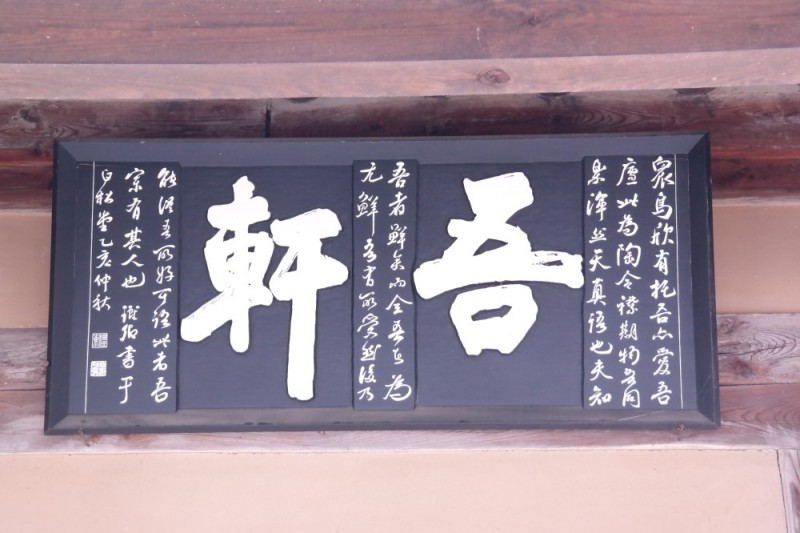 衆鳥欣有托吾亦愛吾
廬此為陶令襟期物同
渾然天真語也夫知
吾
吾者鮮矣而全吾為
尤鮮吾有所然後乃
軒
能從吾所好可語此者吾
宗有其人也 書于
白松堂乙亥仲秋